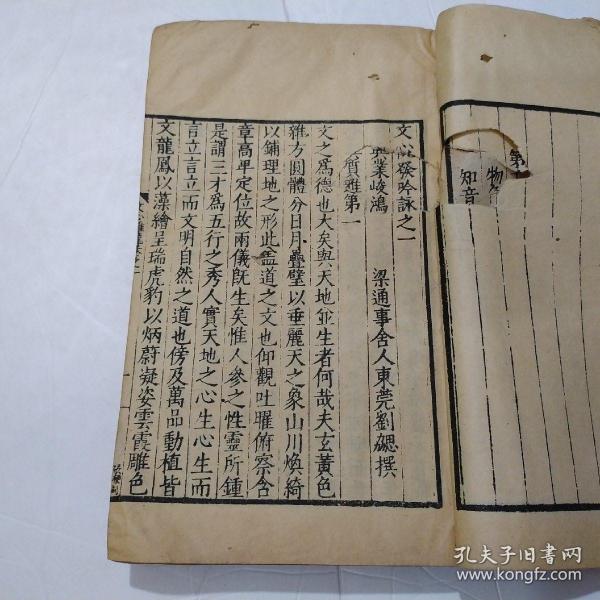 物色
知音
第
文心發吟詠之一
興業峻鴻
質雖第一
梁通事舍人東莞劉勰撰
文之為德也大矣與天地並生者何哉夫玄黃色
雜方圓體分日月疊璧以垂麗天之象山川煥綺
以鋪理地之形此盖道之文也仰觀吐曜俯察含
章高卑定位故兩儀既生矣惟人參之性靈所鍾
是謂三才為五行之秀人實天地之心生心生而
言立言立而文明自然之道也傍及萬品動植皆
文龍鳳以藻繪呈瑞虎豹以炳蔚凝姿雲霞雕色
孔夫子旧书网
www.kongfz.com